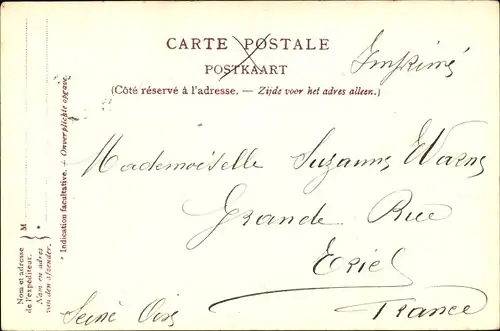 CARTE POSTALE
POSTKAART
(Côté réservé à l'adresse. — Zijde voor het adres alleen.)
Imprimé
Mademoiselle Suzanne
Grande Rue
Eriel
Seine Oise
France
* Indication facultative. — Onverplichte opgave.
M *
Nom et adresse
de l'expéditeur.
Naam en adres
van den afzender.